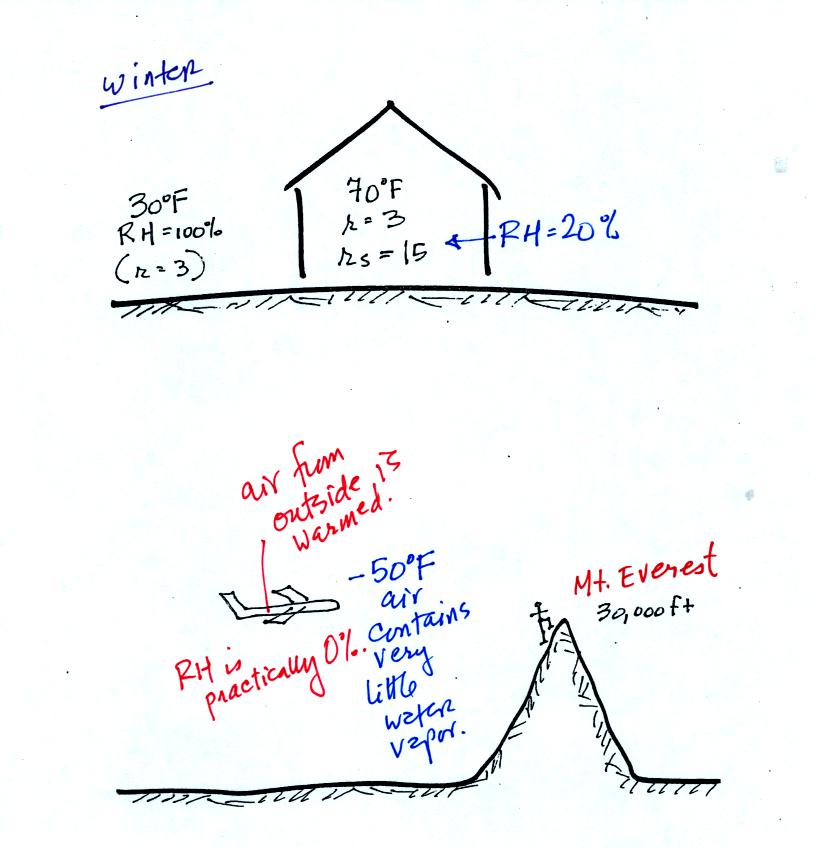 winter
30°F
RH=100%
(r=3)
70°F
r=3
rs=15
RH=20%
air from
outside is
warmed.
-50°F
air
contains
very
little
water
vapor.
RH is
practically 0%.
Mt. Everest
30,000 ft